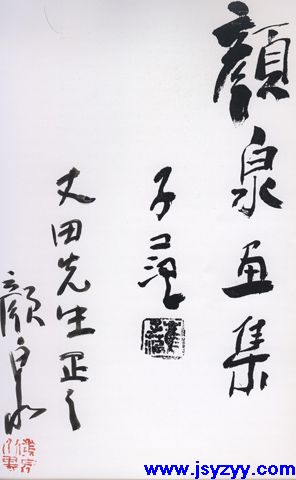 顏泉画集
子范
丈田先生正之
顏泉
www.jsyzyy.com